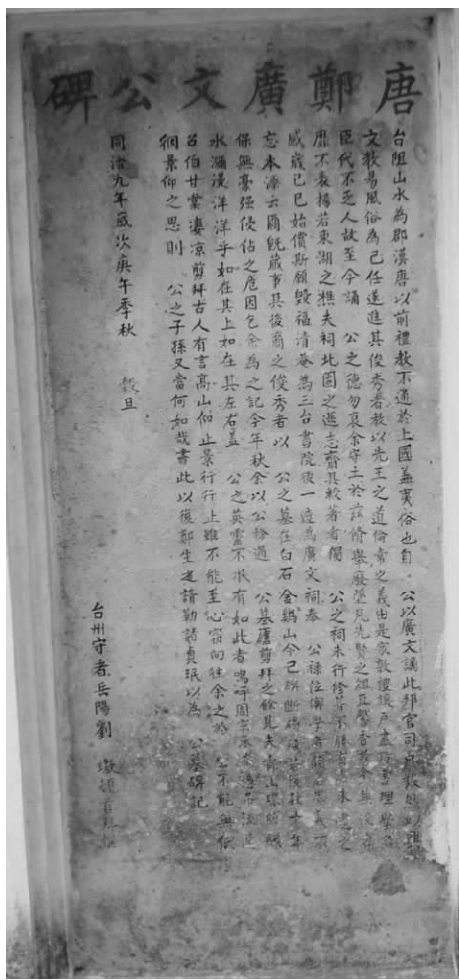 唐鄭廣文公碑
台阻山水為郡漢唐以前禮教不通於上國蓋夷俗也自　公以廣文謫此邦官司戶
文教易風俗為己任選進其俊秀者教以先王之道倫常之義由是家敦禮讓戶盡
臣代不乏人故至今誦　公之德勿衰余守土於茲脩舉廢墜凡先賢之俎豆馨香
歷不表揚若東湖之樵夫祠北固之遜志齋其較著者獨　公之祠未行修
感歲己巳始償斯願毀福清菴為三台書院後一造為廣文祠奉　公祿位俾學者
忘本源云爾既蕆事其後裔之俊秀者以　公之墓在白石金雞山今已
保無豪强侵佔之虑因乞余為之記今年秋余以公務過　公墓廬剪拜之餘見夫
水瀰漫洋洋乎如在其上如在其左右蓋　公之英靈不泯有如此者嗚呼
召伯甘棠淒凉剪拜古人有言高山仰止景行行止雖不能至心竊向往余之於　公不能無低
徊景仰之思則　公之子孫又當何如哉書此以復鄭生之請勒諸貞珉以為　公墓碑記
同治九年歲次庚午季秋　穀旦
台州守者岳陽劉璈